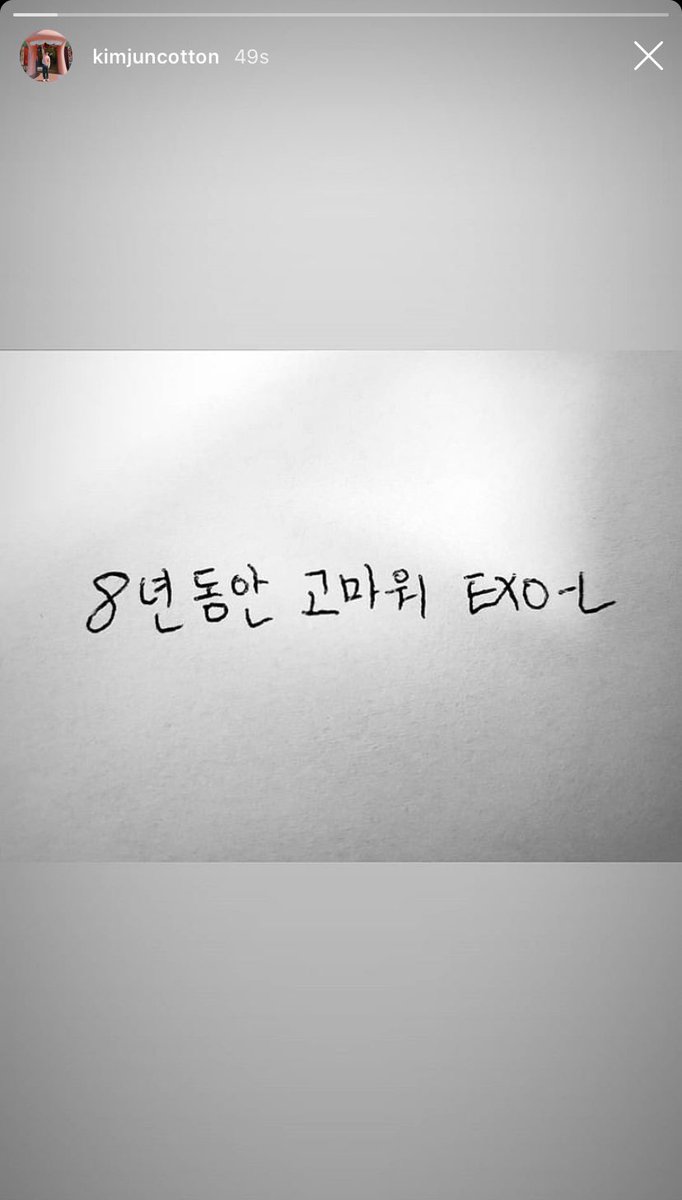 kimjuncotton 49s
8년동안 고마워 EXO-L